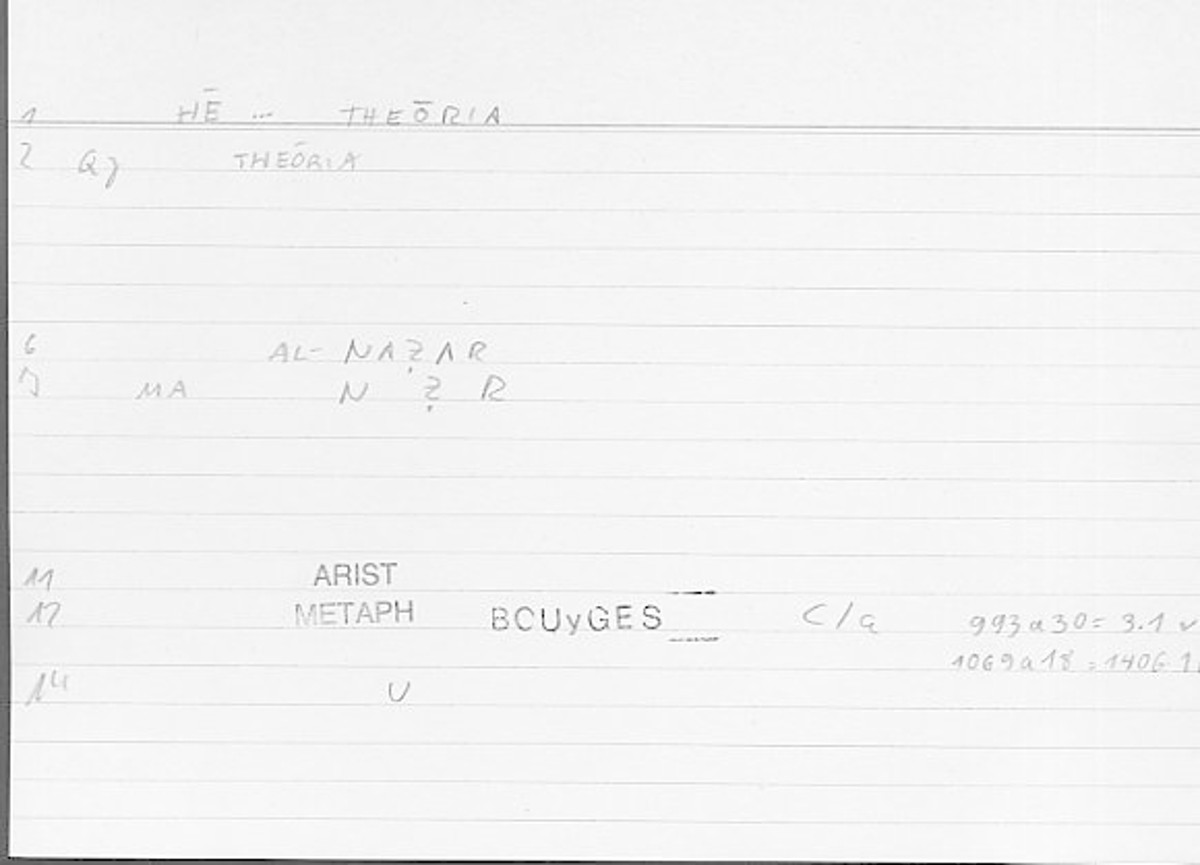 1 HĒ ... THEŌRIA
2 Qy THEŌRIA
6 AL-NAẒAR
MA N Ẓ R
11 ARIST
12 METAPH BCUyGES C/a 993a30= 3.1
1069a18 = 1406.
14 U